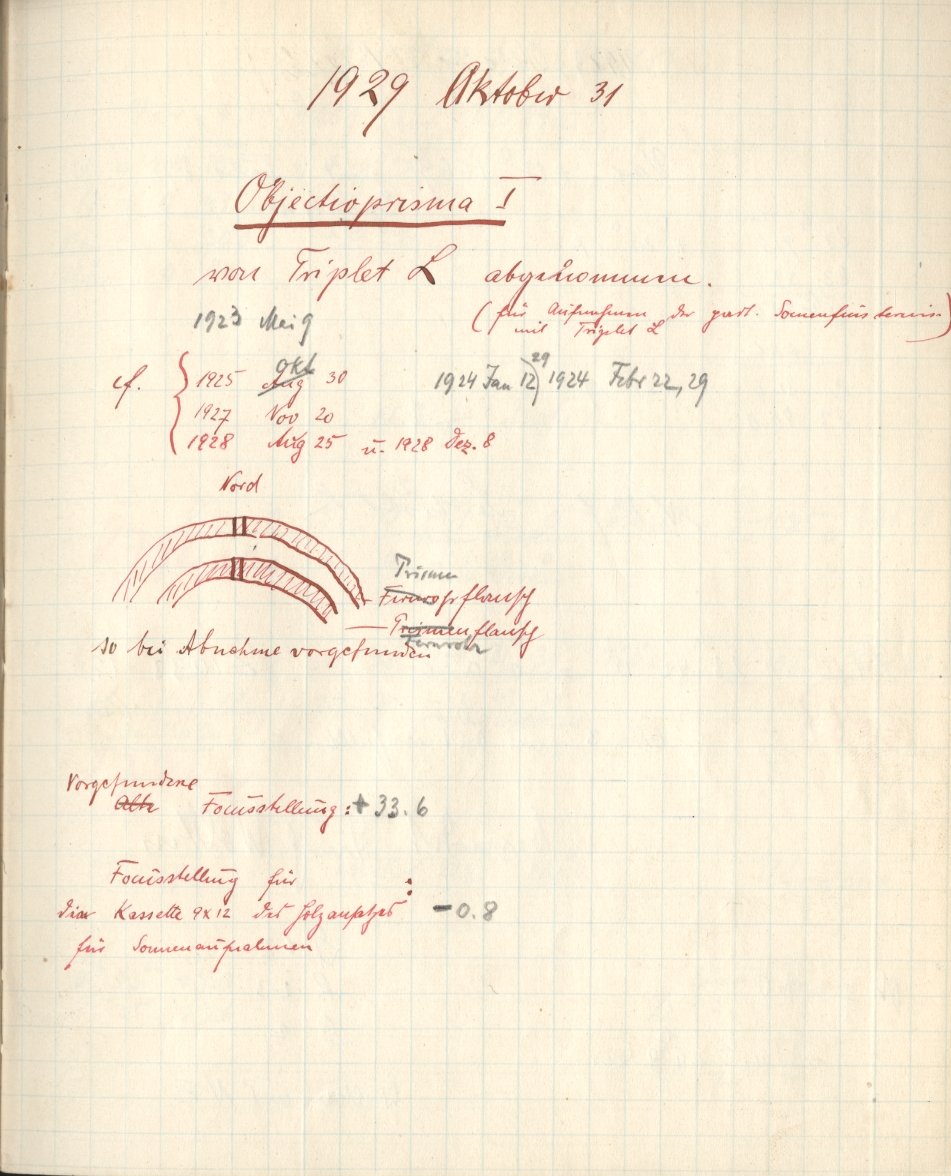 1929 Oktober 31
Objectivprisma I
von Triplet L abgenommen.
(für Aufnahmen der part. Sonnenfinsternis
mit Triplet L)
1923 Mai 9
Okt 29
cf. 1925 Aug 30 1924 Jan 12, 1924 Febr 22, 29
1927 Nov 20
1928 Aug 25 u. 1928 Dez. 8
Nord
Prismen
Fernrohrflansch
Prismenflansch
Fernrohr
so bei Abnahme vorgefunden
Vorgefundene
Alte Focusstellung: + 33.6
Focusstellung für :
die Kassette 9x12 des Holzansatzes - 0.8
für Sonnenaufnahmen